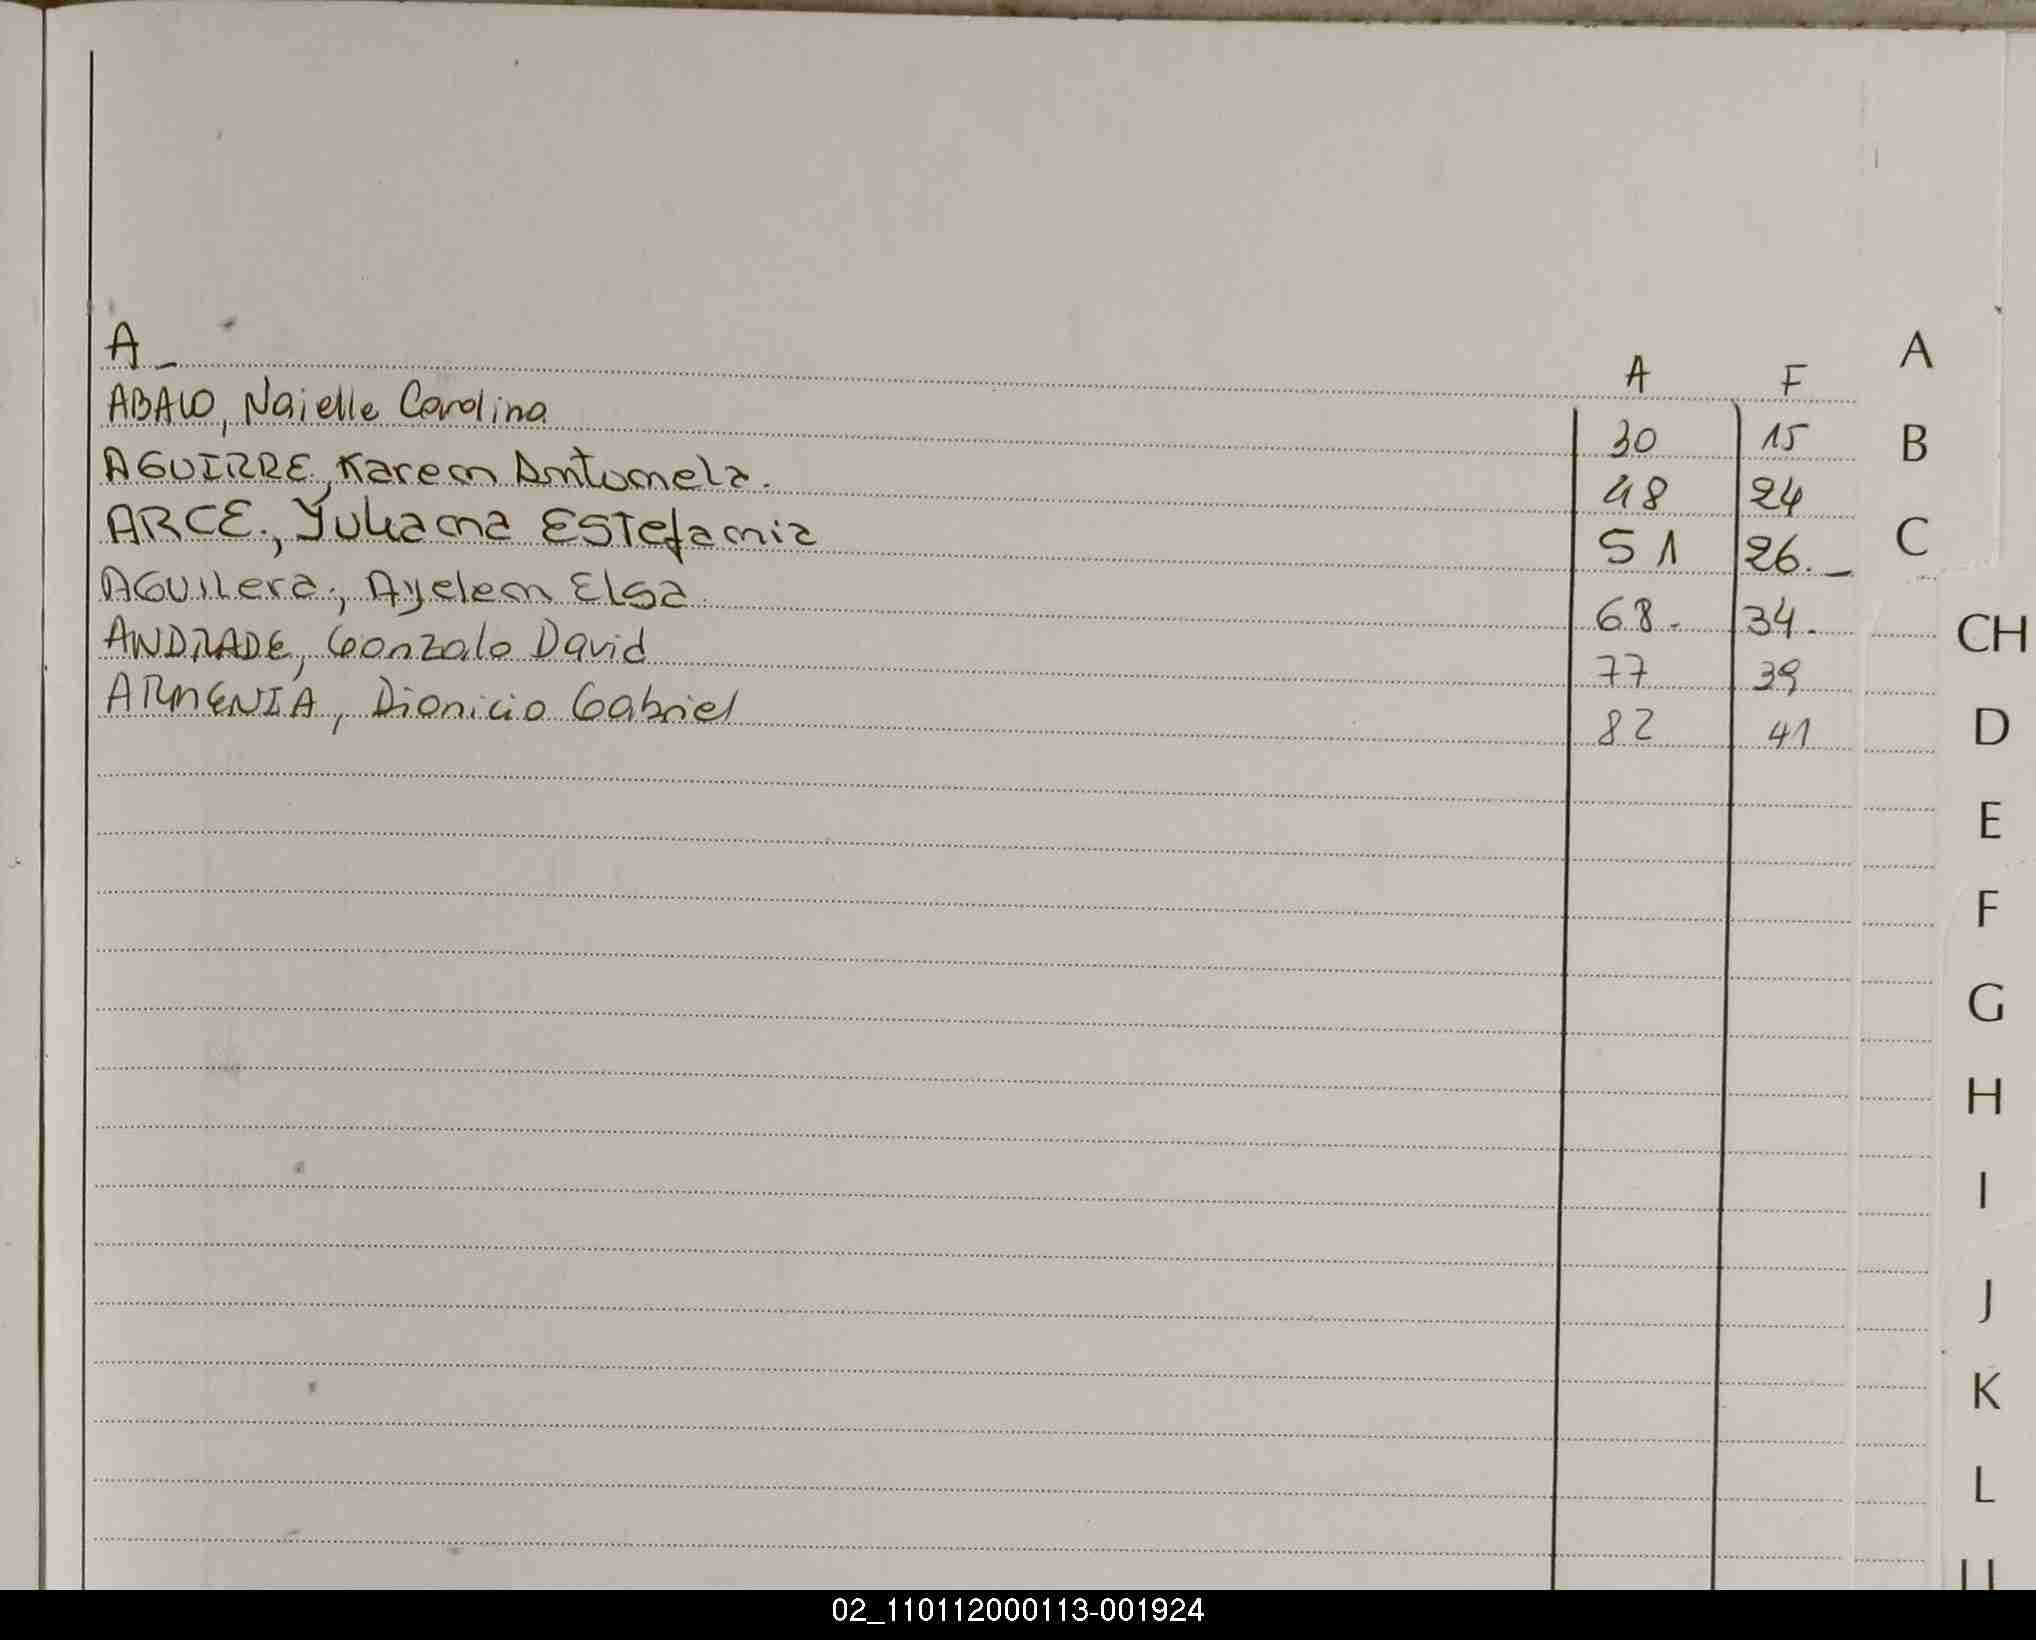 A_ A F A
ABALO, Naielle Carolina 30 15 B
AGUIRRE, Karen Antonela. 48 24
ARCE., Yuliana Estefania 51 26._ C
AGUILera., Ayelen Elsa. 68. 34. CH
ANDRADE, Gonzalo David 77 39
ARMENIA, Dionicio Gabriel 82 41 D
E
F
G
H
I
J
K
L
02_110112000113-001924